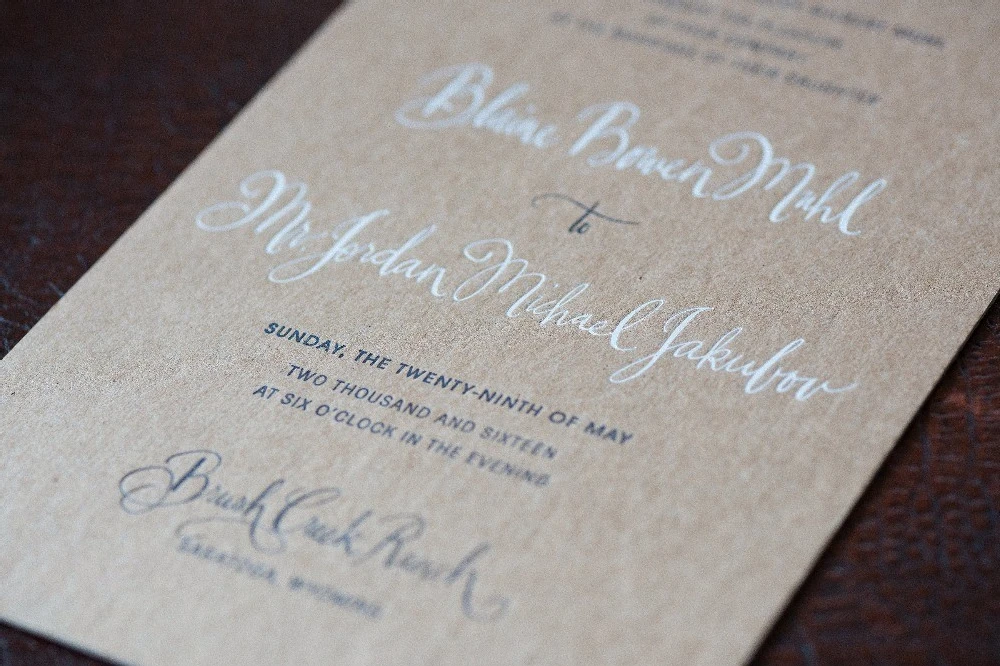 OF THEIR DAUGHTER
Blaine Bowen Mahl
to
Mr. Jordan Michael Jakubov
SUNDAY, THE TWENTY-NINTH OF MAY
TWO THOUSAND AND SIXTEEN
AT SIX O'CLOCK IN THE EVENING
Brush Creek Ranch
SARATOGA, WYOMING